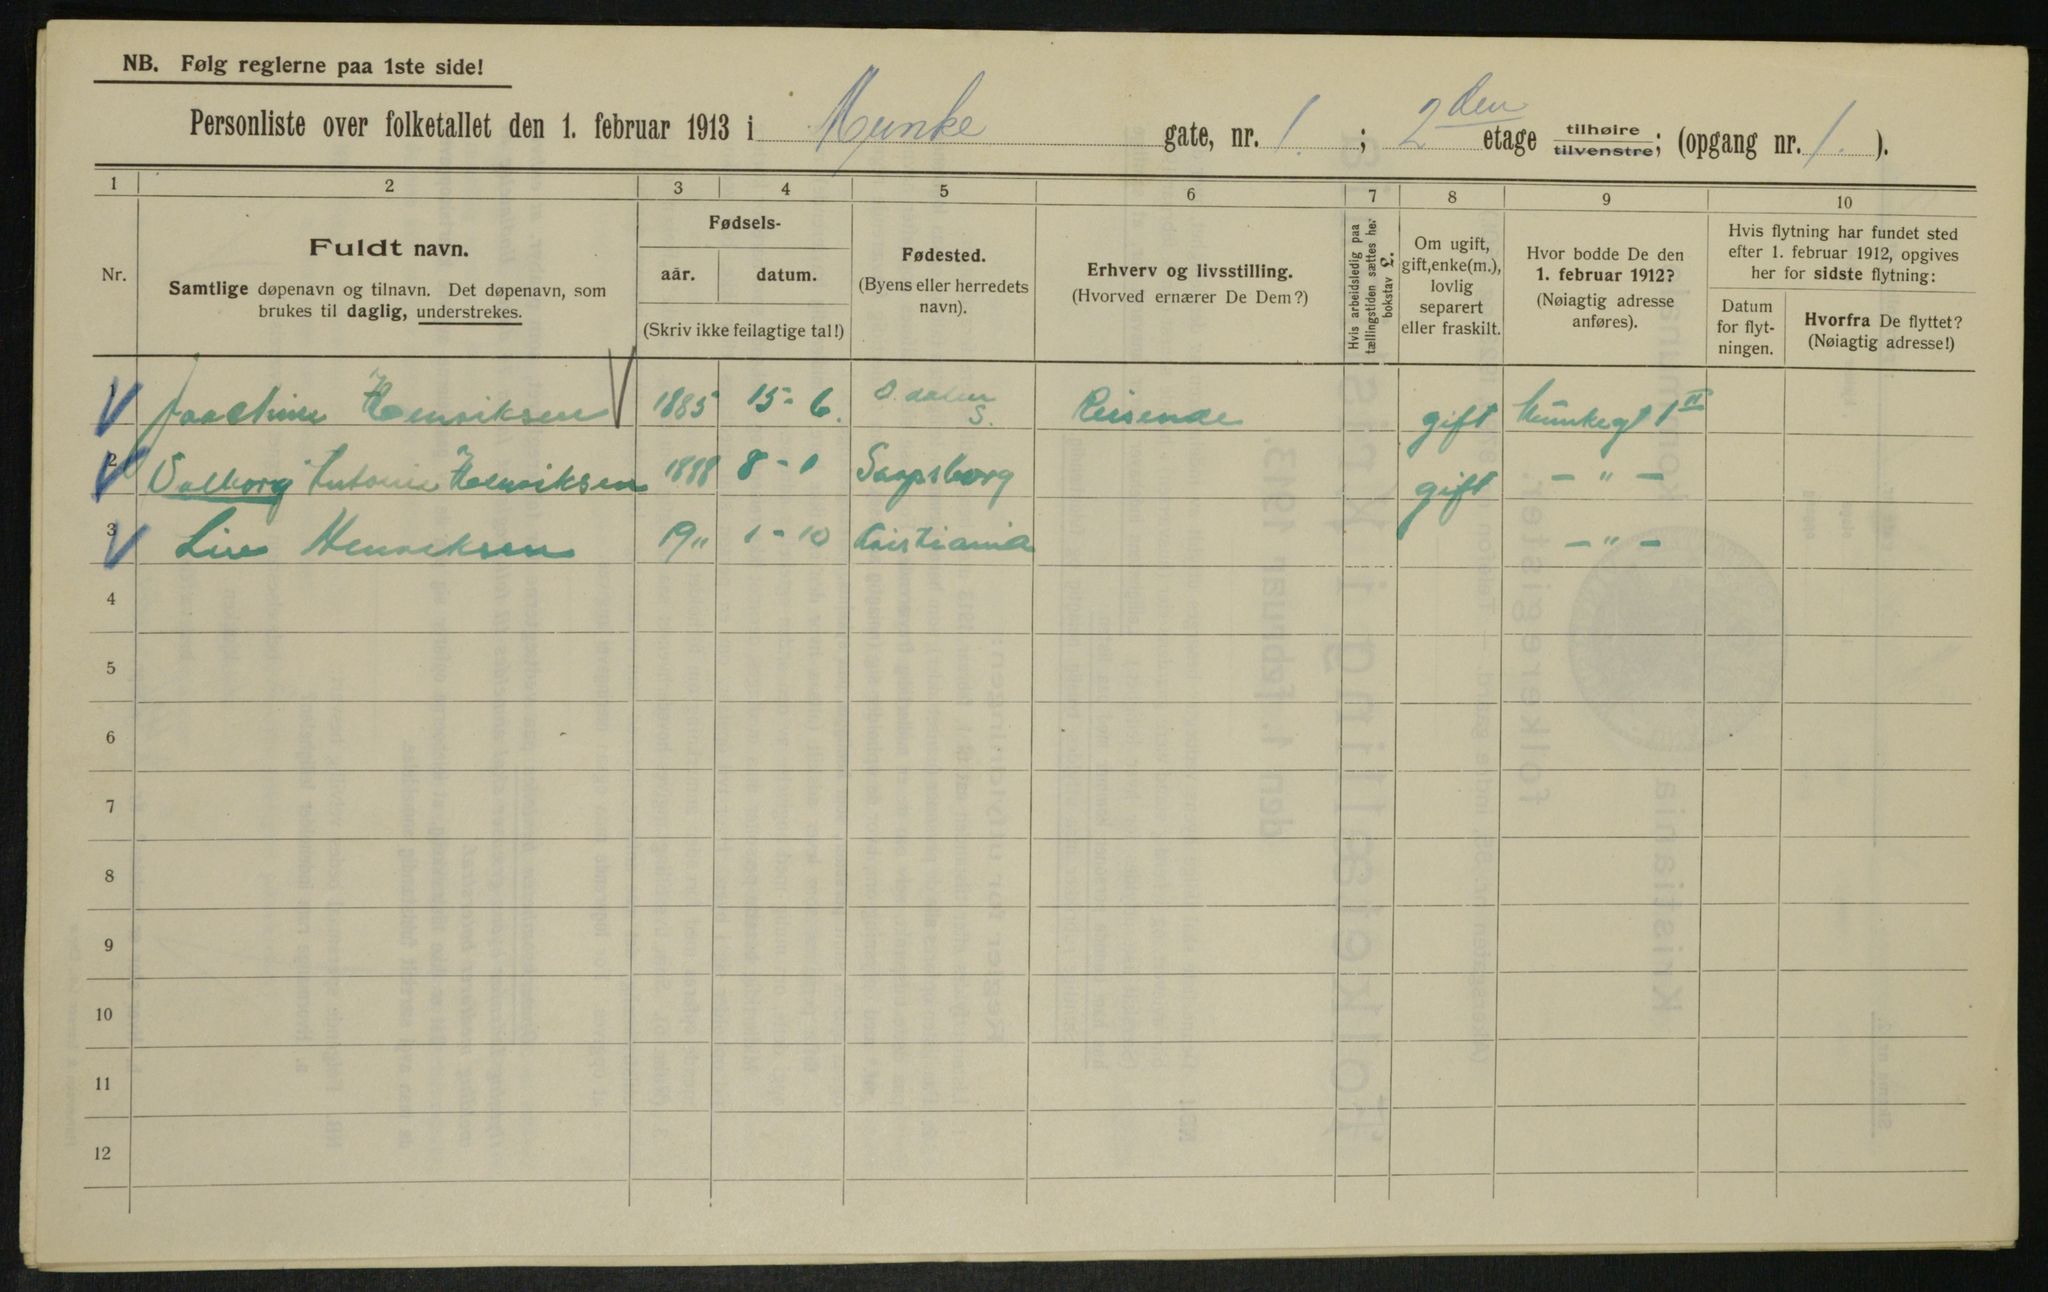 NB. Følg reglerne paa 1ste side!
Personliste over folketallet den 1. februar 1913 i Munke gate, nr. 1. ; 2den etage tilhøire tilvenstre; (opgang nr. 1. ).
1 2 3 4 5 6 7 8 9 10
Nr.
Fuldt navn.
Samtlige døpenavn og tilnavn. Det døpenavn, som
brukes til daglig, understrekes.
Fødsels-
aar. datum.
(Skriv ikke feilagtige tal!)
Fødested.
(Byens eller herredets
navn).
Erhverv og livsstilling.
(Hvorved ernærer De Dem?)
Hvis arbeidsledig paa
tællingstiden sættes her
bokstav L.
Om ugift,
gift, enke(m.),
lovlig
separert
eller fraskilt.
Hvor bodde De den
1. februar 1912?
(Nøiagtig adresse
anføres).
Hvis flytning har fundet sted
efter 1. februar 1912, opgives
her for sidste flytning:
Datum
for flyt-
ningen.
Hvorfra De flyttet?
(Nøiagtig adresse!)
1 Joachim Henriksen 1885 15-6. S. Odalen Reisende gift Munkegt 1 II
2 Valborg Antonie Henriksen 1888 8-1 Sarpsborg gift - " -
3 Henriksen 1911 1-10 Kristiania - " -
4
5
6
7
8
9
10
11
12